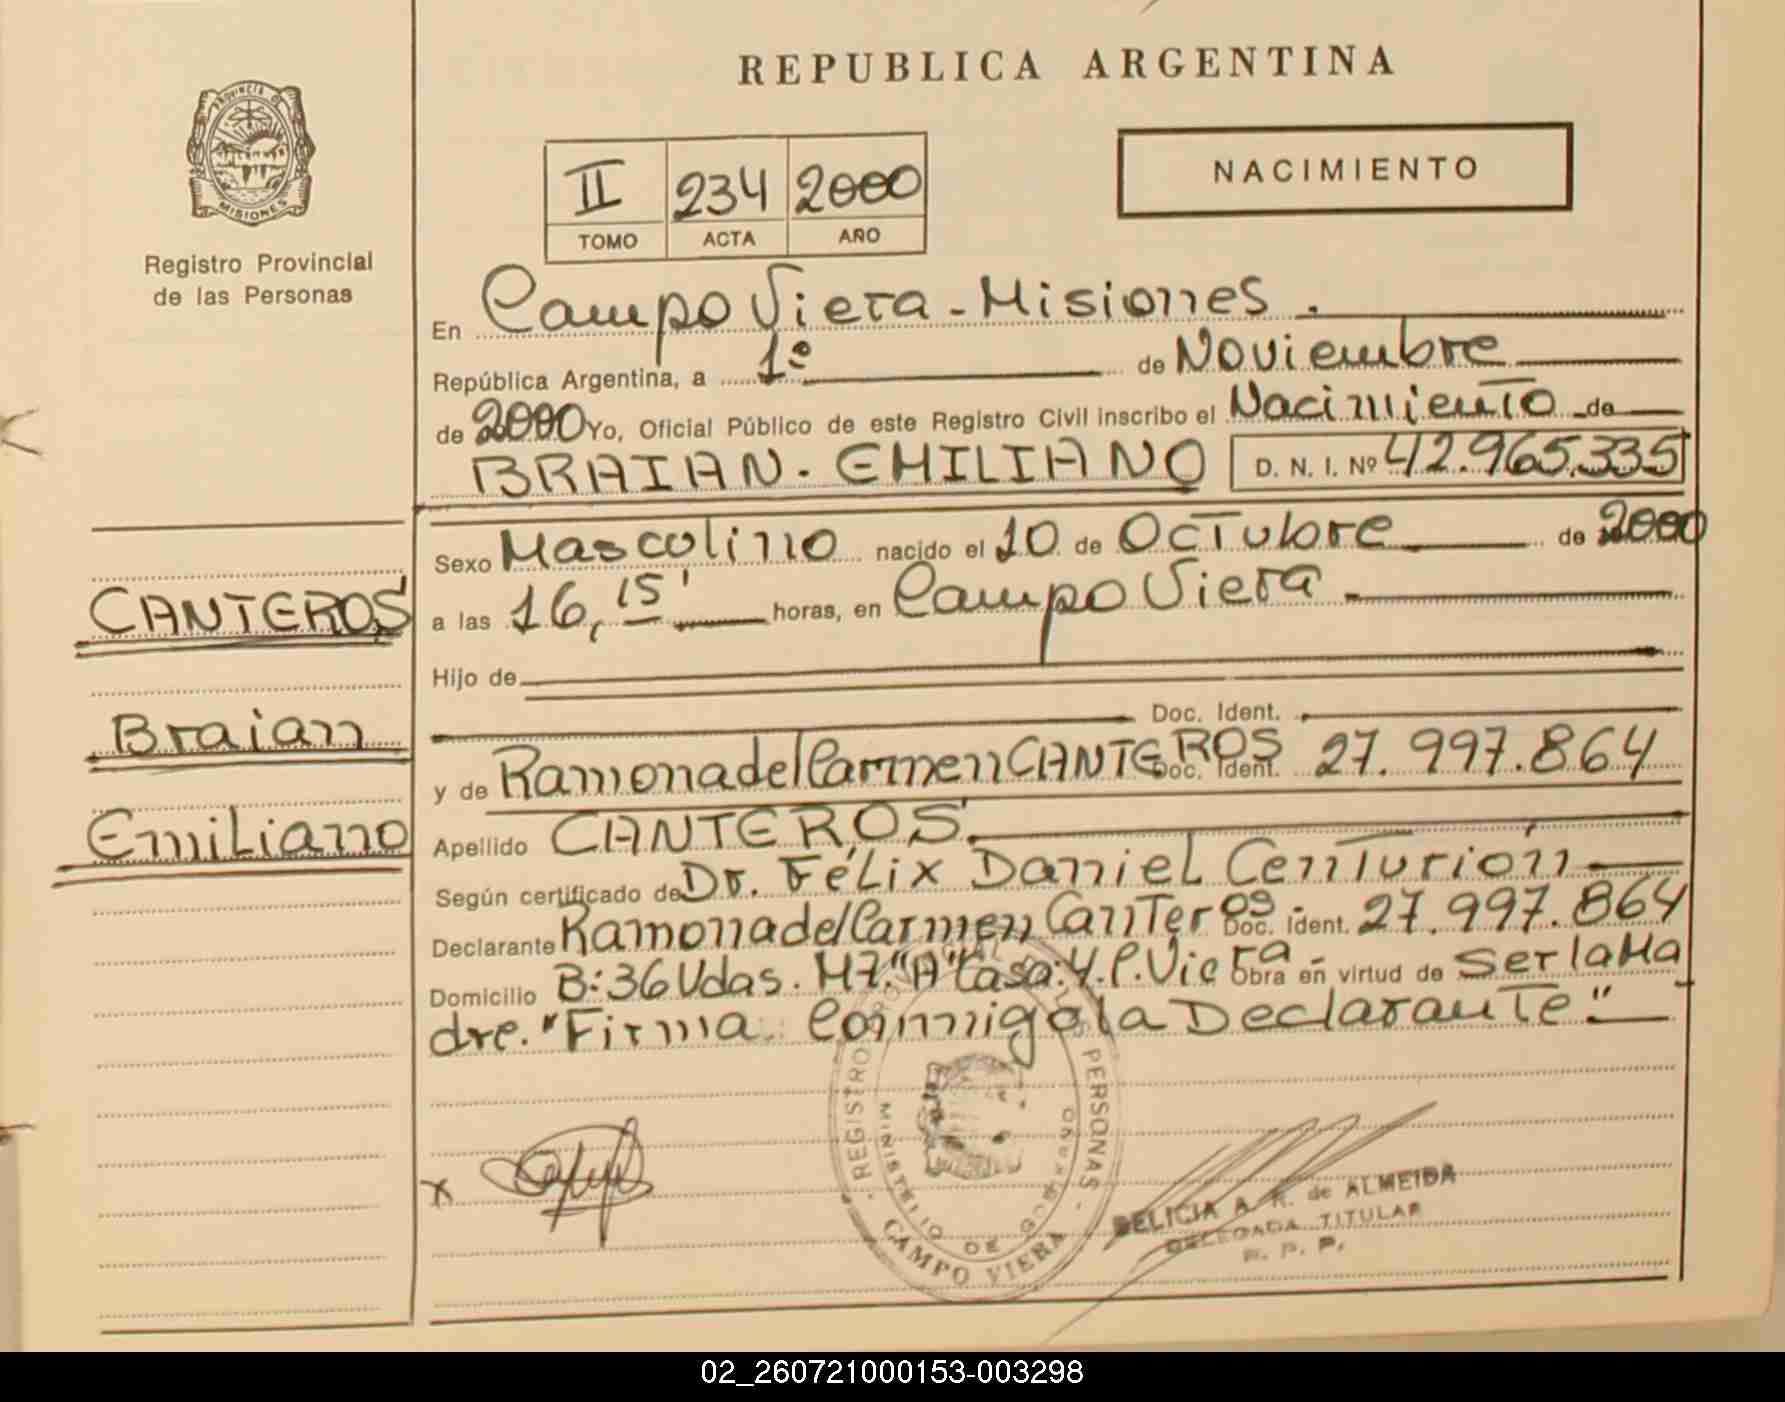 REPUBLICA ARGENTINA
PROVINCIA DE
MISIONES
Registro Provincial
de las Personas
II 234 2000
TOMO ACTA AÑO
NACIMIENTO
En Campo Viera - Misiones.
República Argentina, a 1º de Noviembre
de 2000 Yo, Oficial Público de este Registro Civil inscribo el Nacimiento de
BRAIAN - EMILIANO D. N. I. Nº 42.965.335
Sexo Masculino nacido el 10 de Octubre de 2000
a las 16,15' horas, en Campo Viera
Hijo de
Doc. Ident.
y de Ramona del Carmen CANTEROS Doc. Ident. 27.997.864
Apellido CANTEROS.
Según certificado de Dr. Félix Daniel Centurión
Declarante Ramona del Carmen Canteros Doc. Ident. 27.997.864
Domicilio B: 36 Vdas. M7. "A" Casa: 4. C. Viera Obra en virtud de ser la Ma
dre. "Firma Conmigo la Declarante"
CANTEROS
Braian
Emiliano
x
REGISTRO PROVINCIAL DE LAS PERSONAS
MINISTERIO DE GOBIERNO
CAMPO VIERA
DELICIA A. R. de ALMEIDA
DELEGADA TITULAR
R. P. P.
02_260721000153-003298